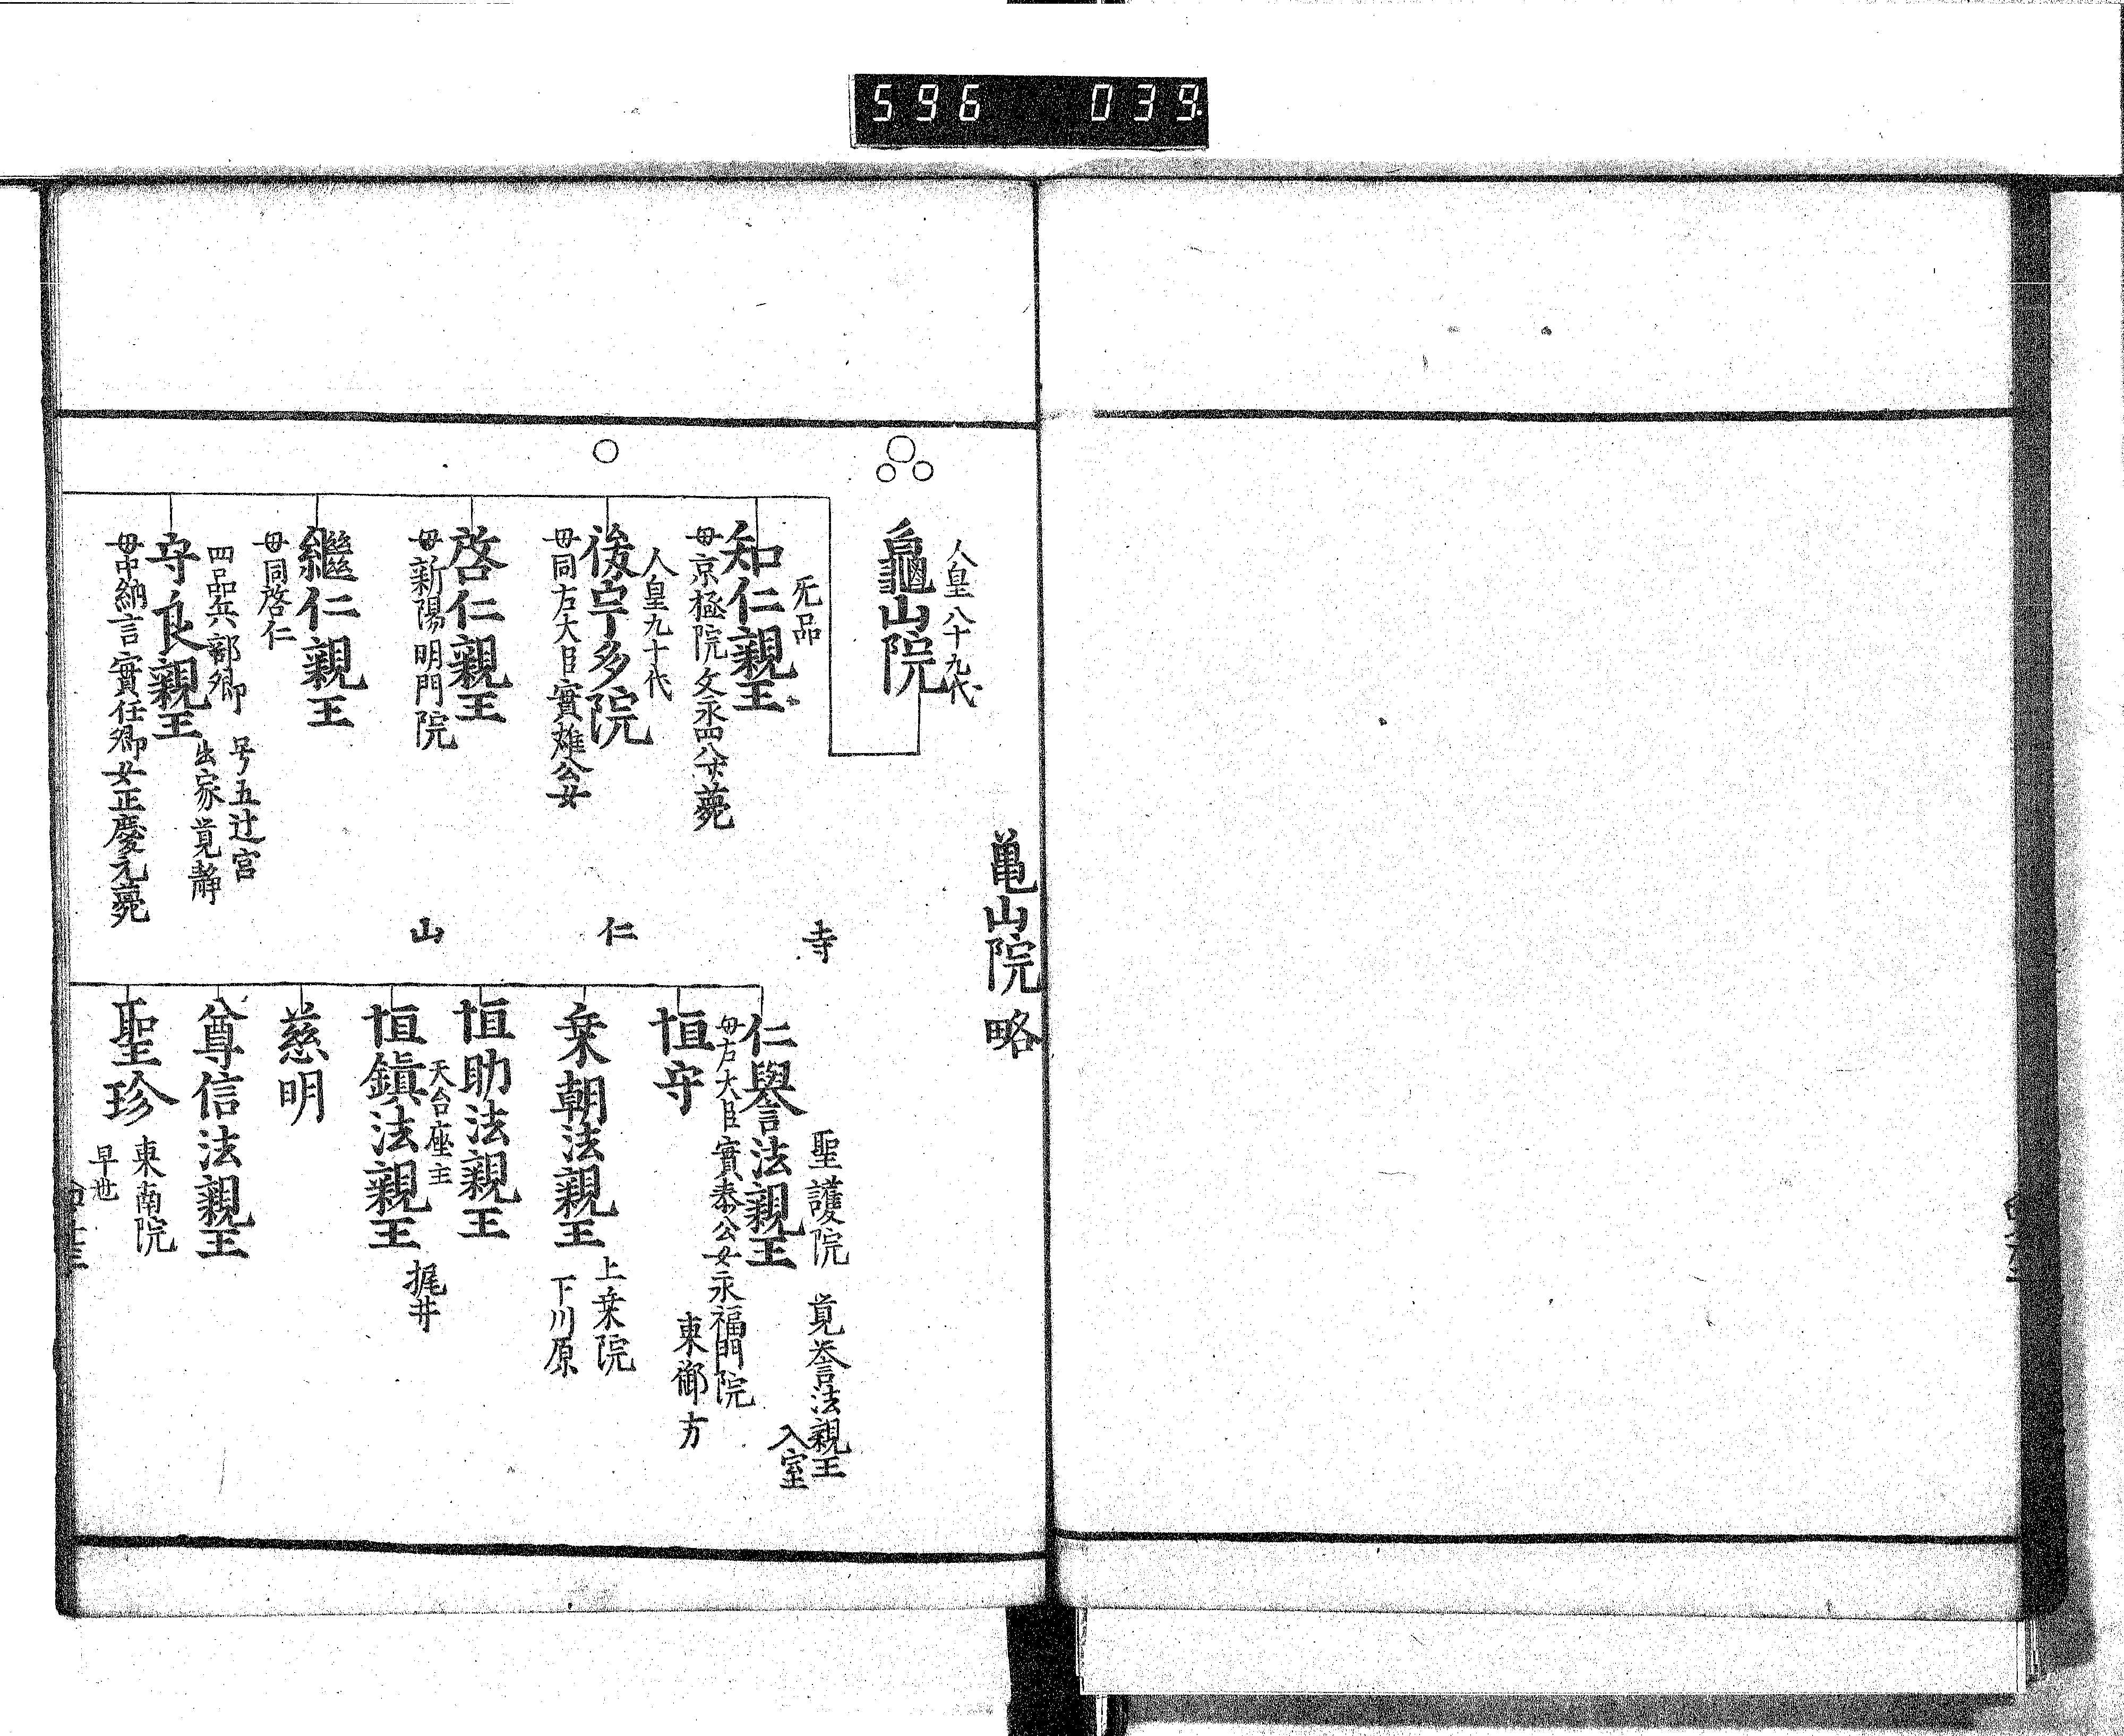 596 039
亀山院略
人皇八十九代
龜山院
无品
知仁親王
母京極院文永四八廿薨
人皇九十代
後宇多院
母同左大臣實雄公女
啓仁親王
母新陽明門院
繼仁親王
母同啓仁
四品兵部卿 号五辻宮
出家覚静
守良親王
母中納言實任卿女正慶元薨
寺
聖護院 覚誉法親王
入室
仁譽法親王
母左大臣實泰公女永福門院
東御方
恒守
仁
乗朝法親王
上乗院
下川原
恒助法親王
山
天台座主
恒鎮法親王
梶井
慈明
尊信法親王
聖珍
東南院
早世